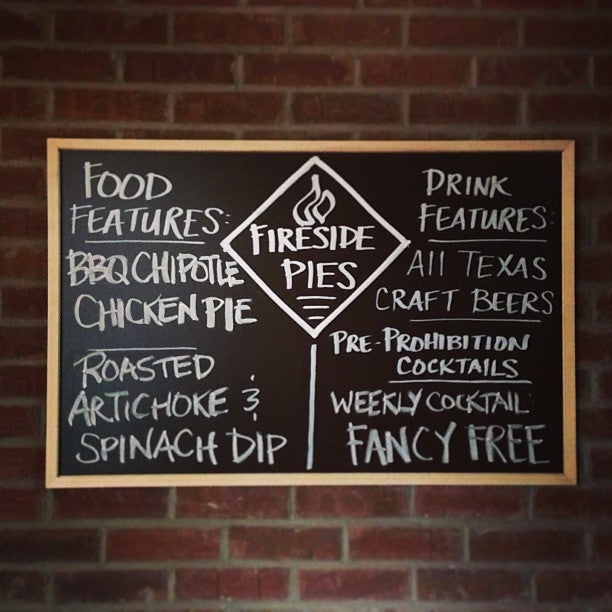 FOOD
FEATURES:
BBQ CHIPOTLE
CHICKEN PIE
ROASTED
ARTICHOKE &
SPINACH DIP
FIRESIDE
PIES
DRINK
FEATURES:
All TEXAS
CRAFT BEERS
PRE-PROHIBITION
COCKTAILS
WEEKLY COCKTAIL:
FANCY FREE